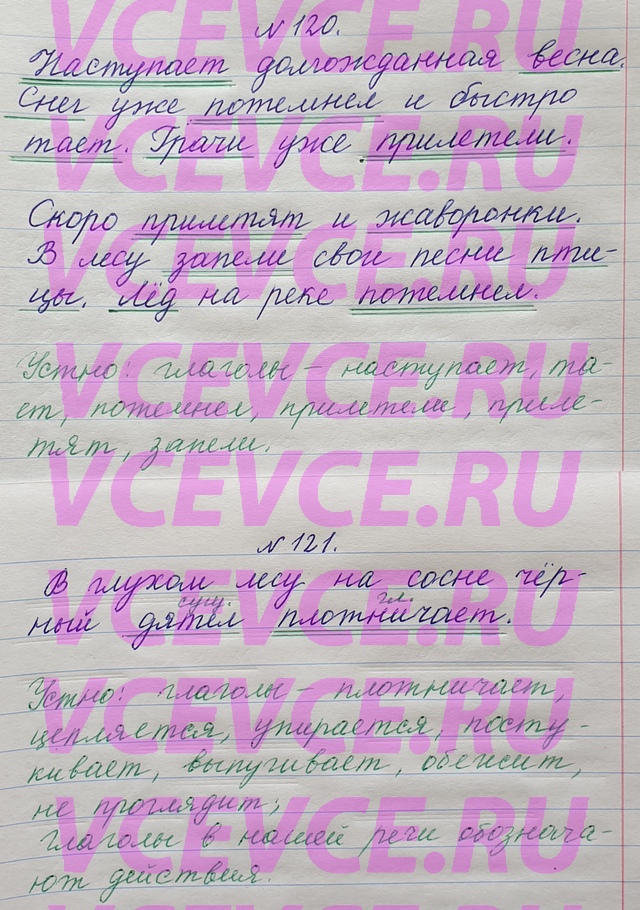 № 120.
Наступает долгожданная весна.
Снег уже потемнел и быстро
тает. Грачи уже прилетели.
Скоро прилетят и жаворонки.
В лесу запели свои песни пти-
цы. Лёд на реке потемнел.
Устно: глаголы – наступает, та-
ет, потемнел, прилетели, приле-
тят, запели.
№ 121.
В глухом лесу на сосне чёр-
сущ. гл.
ный дятел плотничает.
Устно: глаголы – плотничает,
цепляется, упирается, посту-
кивает, выпугивает, обежит,
не проглядит;
глаголы в нашей речи обознача-
ют действия.
VCEVCE.RU
VCEVCE.RU
VCEVCE.RU
VCEVCE.RU
VCEVCE.RU
VCEVCE.RU
VCEVCE.RU
VCEVCE.RU